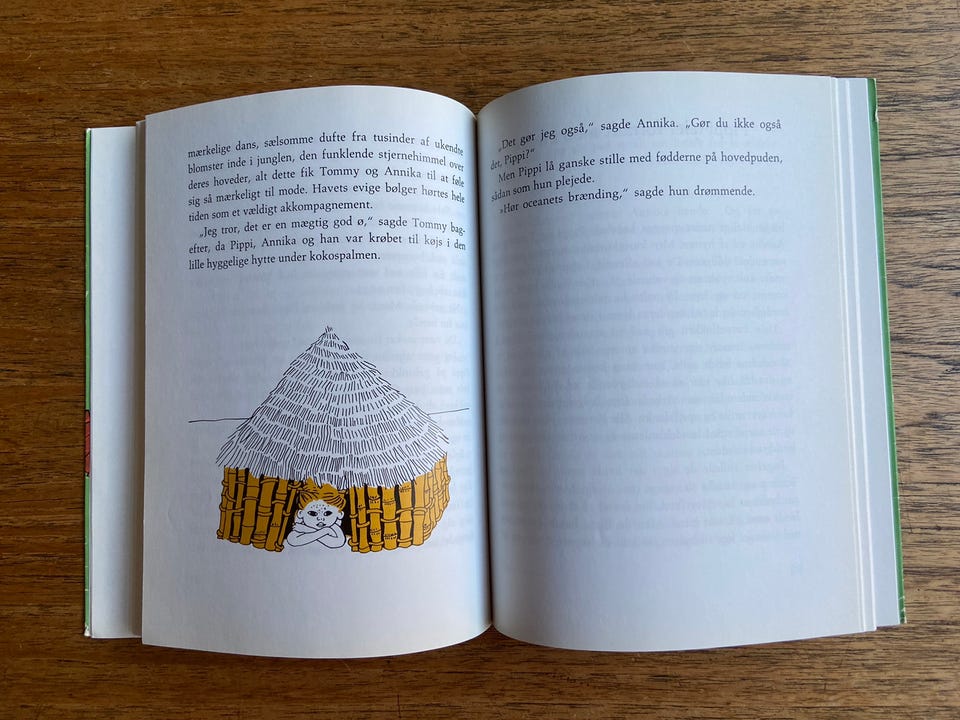 mærkelige dans, sælsomme dufte fra tusinder af ukendte
blomster inde i junglen, den funklende stjernehimmel over
deres hoveder, alt dette fik Tommy og Annika til at føle
sig så mærkeligt til mode. Havets evige bølger hørtes hele
tiden som et vældigt akkompagnement.
„Jeg tror, det er en mægtig god ø,“ sagde Tommy bag-
efter, da Pippi, Annika og han var krøbet til køjs i den
lille hyggelige hytte under kokospalmen.
„Det gør jeg også,“ sagde Annika. „Gør du ikke også
det, Pippi?“
Men Pippi lå ganske stille med fødderne på hovedpuden,
sådan som hun plejede.
„Hør oceanets brænding,“ sagde hun drømmende.